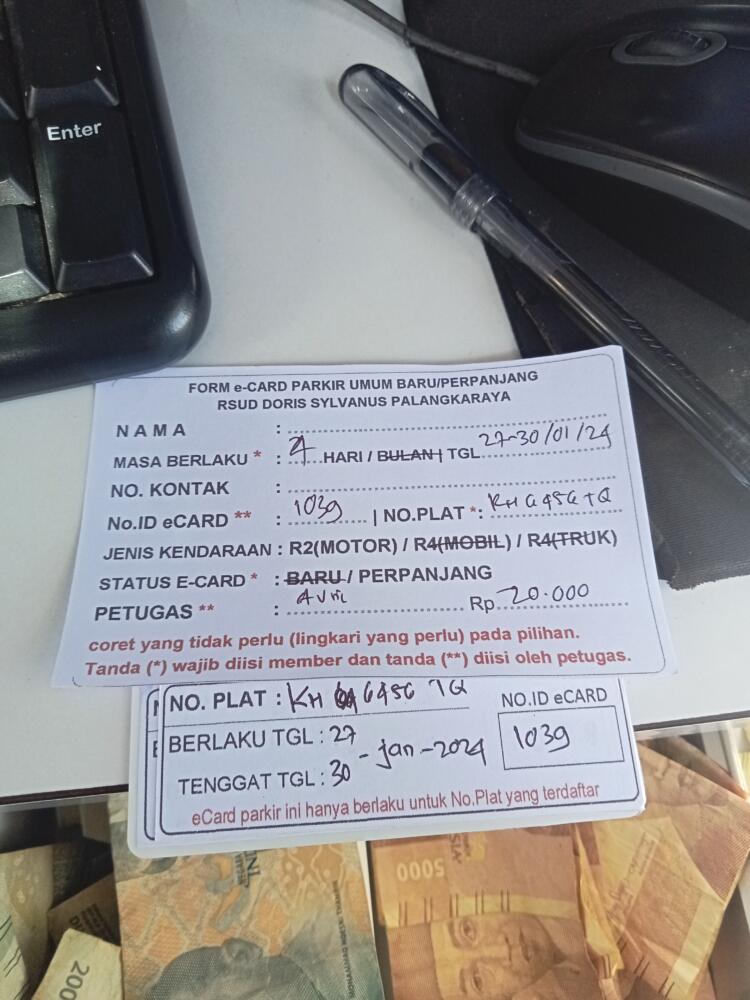 Enter
FORM e-CARD PARKIR UMUM BARU/PERPANJANG
RSUD DORIS SYLVANUS PALANGKARAYA
NAMA :
MASA BERLAKU * : 4 HARI / BULAN | TGL 27-30/01/24
NO. KONTAK :
No.ID eCARD ** : 1039 | NO.PLAT *: KH 6456 TQ
JENIS KENDARAAN : R2(MOTOR) / R4(MOBIL) / R4(TRUK)
STATUS E-CARD * : BARU / PERPANJANG
PETUGAS ** : Avril Rp 20.000
coret yang tidak perlu (lingkari yang perlu) pada pilihan.
Tanda (*) wajib diisi member dan tanda (**) diisi oleh petugas.
NO. PLAT : KH 6456 TQ
NO.ID eCARD
1039
BERLAKU TGL : 27
TENGGAT TGL : 30 - Jan - 2024
eCard parkir ini hanya berlaku untuk No.Plat yang terdaftar
5000
200